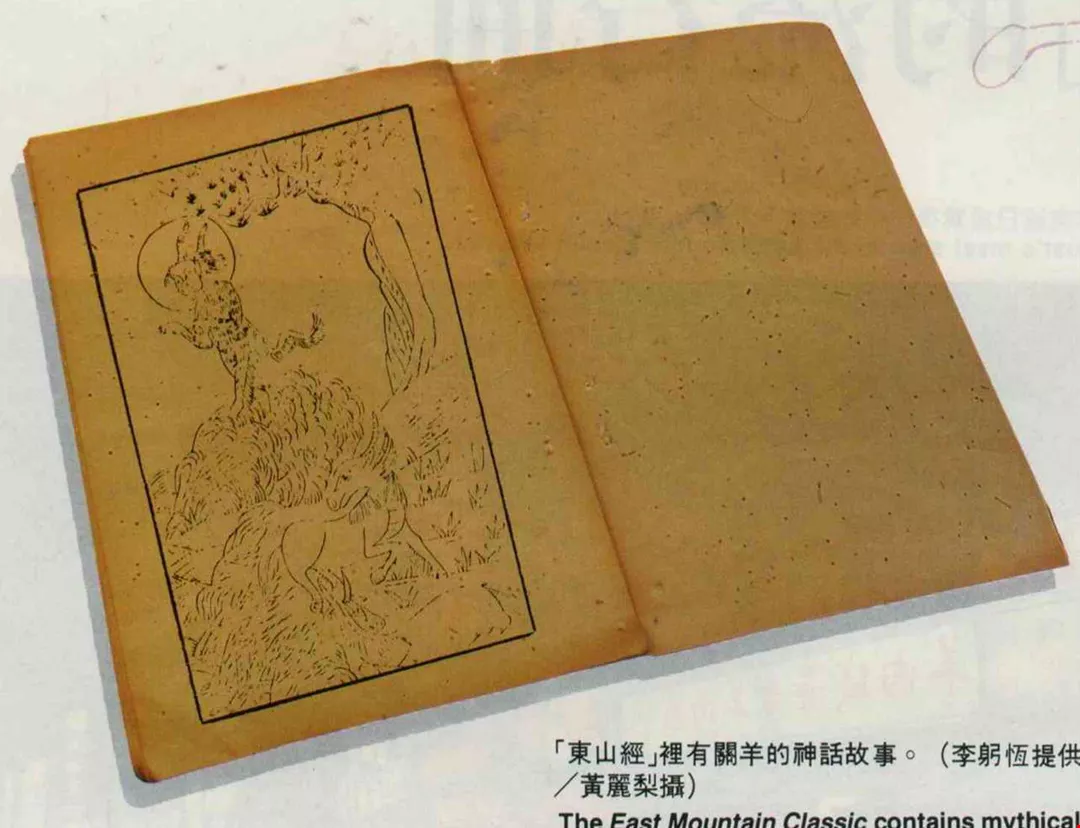 「東山經」裡有關羊的神話故事。（李躬恆提供
／黃麗梨攝）
The East Mountain Classic contains mythical